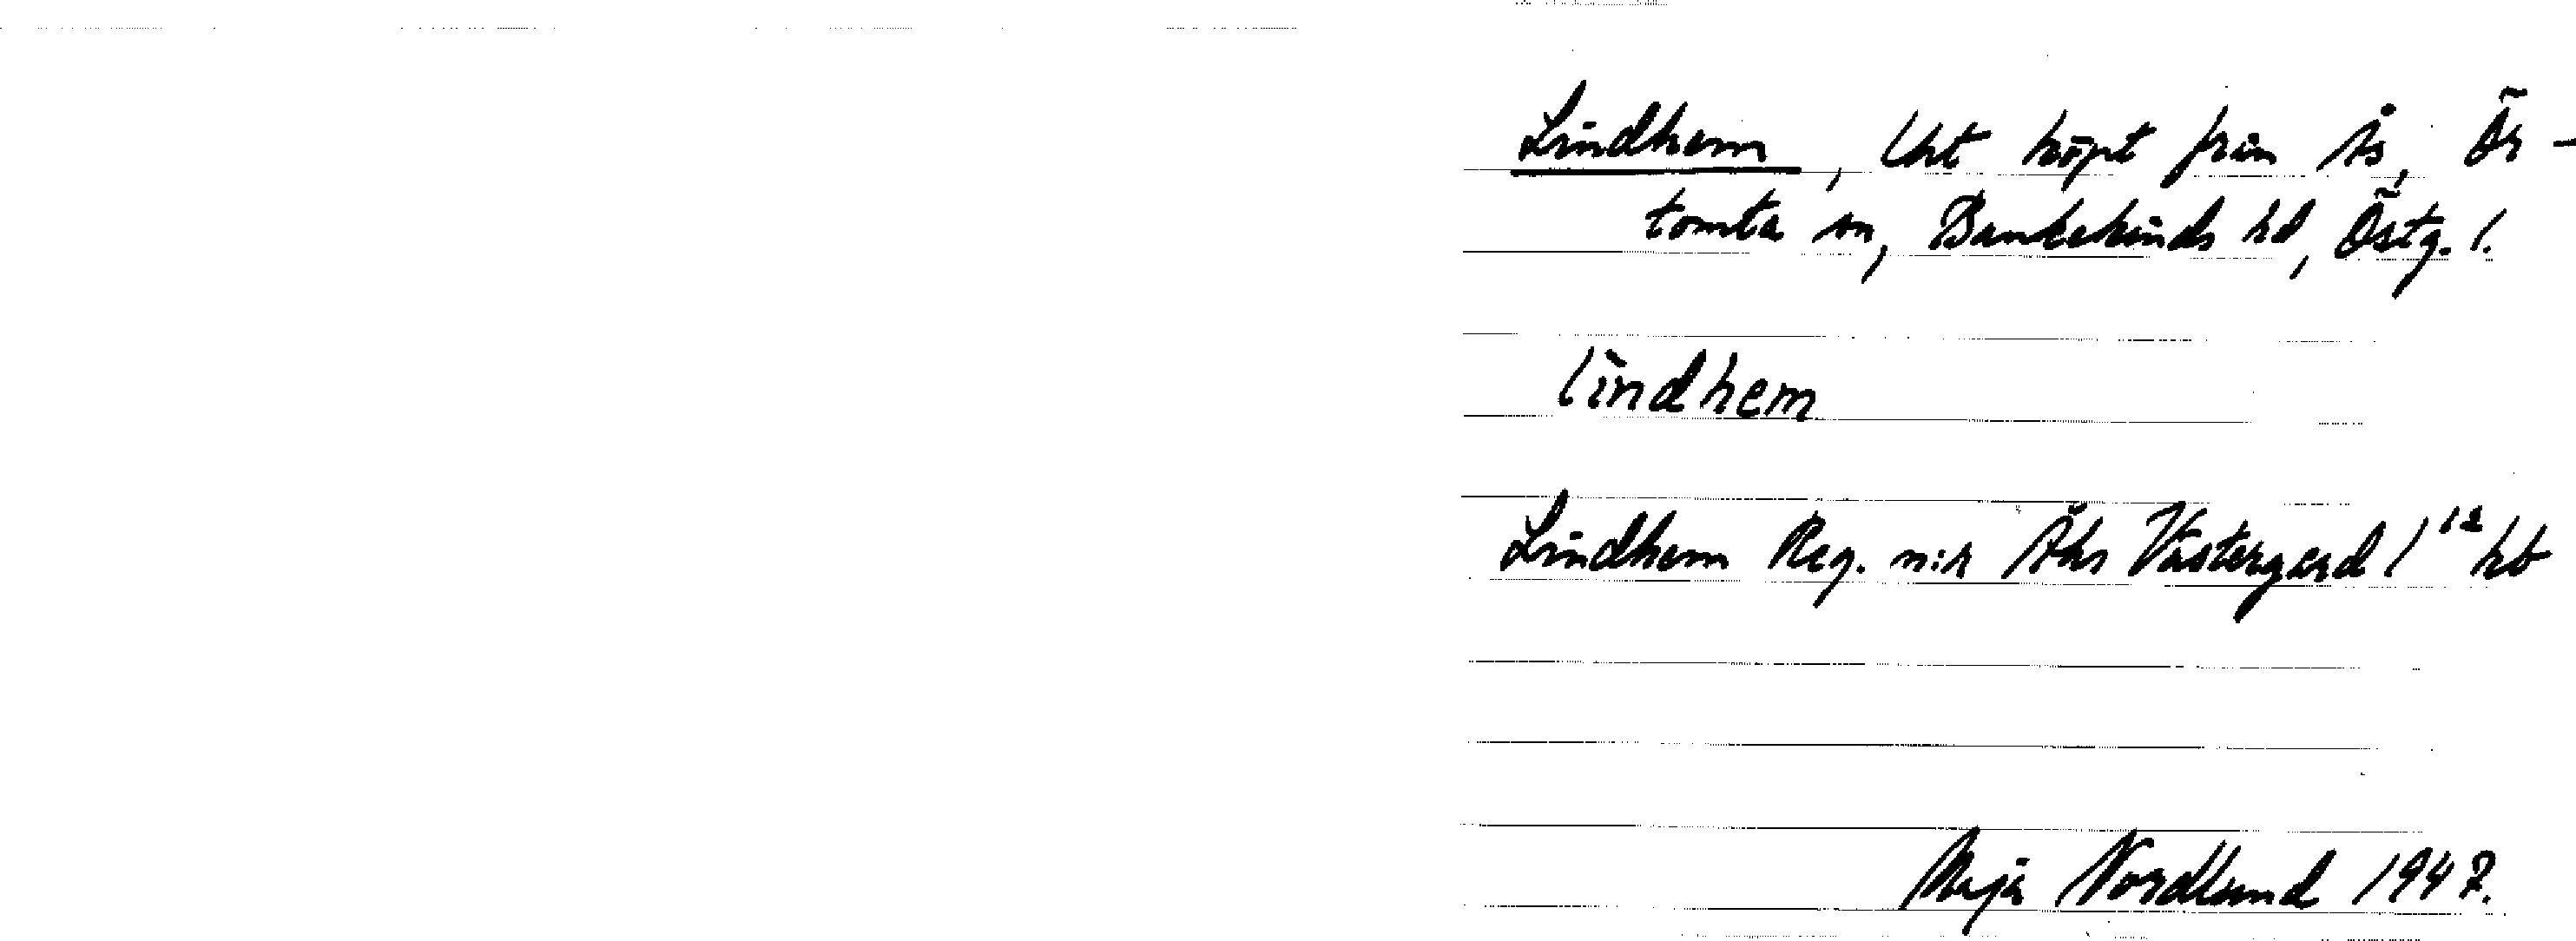 Lindhem, Utköpt från Ås, Ör-
tomta sn, Bankekinds hd, Östg. l.
lindhem
Lindhem Reg. n:r Åhs Västergård 1¹² hb
Maja Nordlund 1947.